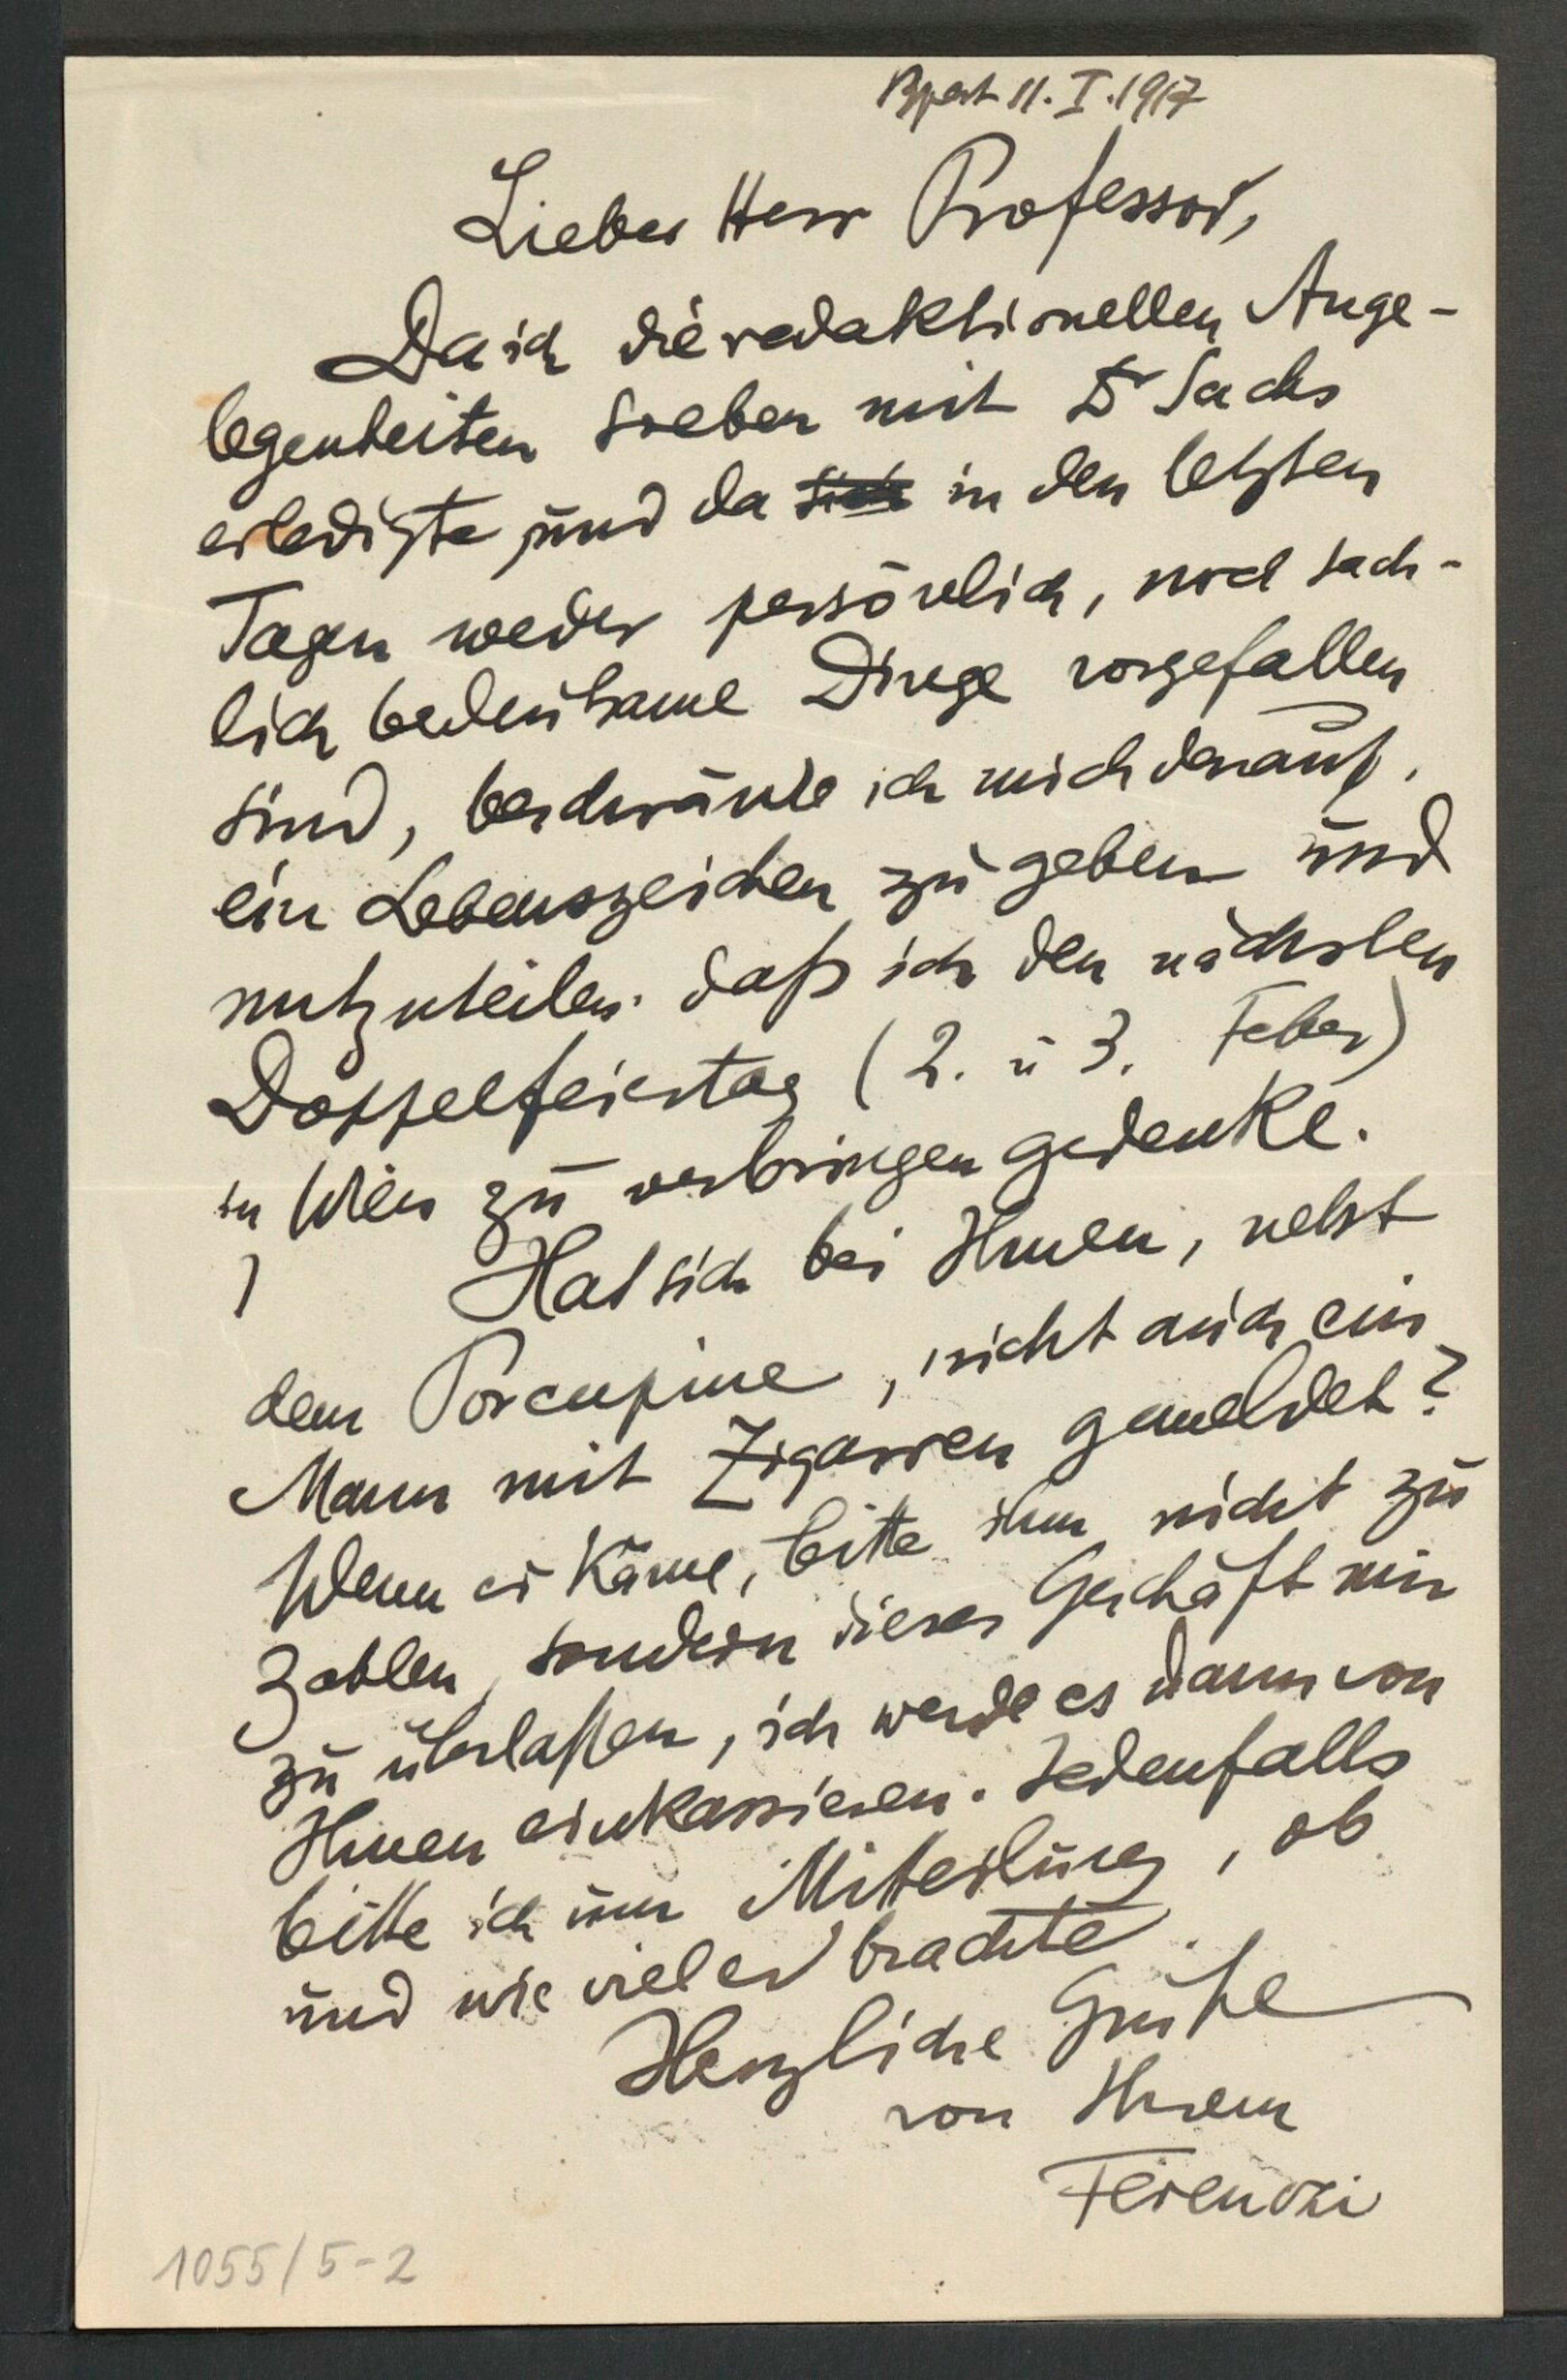 Bpest 11. I. 1917
Lieber Herr Professor,
Da ich die redaktionellen Ange-
legenheiten soeben mit Dr Sachs
erledigte, und da sich in den letzten
Tagen weder persönlich, noch sach-
lich bedeutsame Dinge vorgefallen
sind, beschränke ich mich darauf,
ein Lebenszeichen zu geben und
mitzuteilen, daß ich den nächsten
Doppelfeiertag (2. u 3. Feber)
in Wien zu verbringen gedenke.
Hat sich bei Ihnen, nebst
dem Porcupine, nicht auch ein
Mann mit Zigarren gemeldet?
Wenn er käme, bitte ihm nicht zu
zahlen, sondern dieses Geschäft mir
zu überlaßen, ich werde es dann von
Ihnen einkassieren. Jedenfalls
bitte ich um Mitteilung, ob
und wie viel er brachte.
Herzliche Grüße
von Ihrem
Ferenczi
1055/5-2